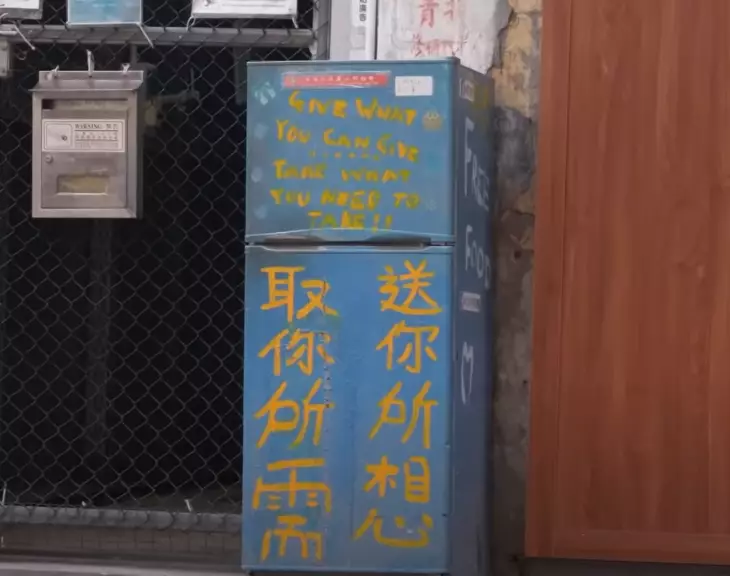 WARNING
GIVE WHAT
YOU CAN GIVE
TAKE WHAT
YOU NEED TO
TAKE!!
FREE
FOOD
送你所想
取你所需